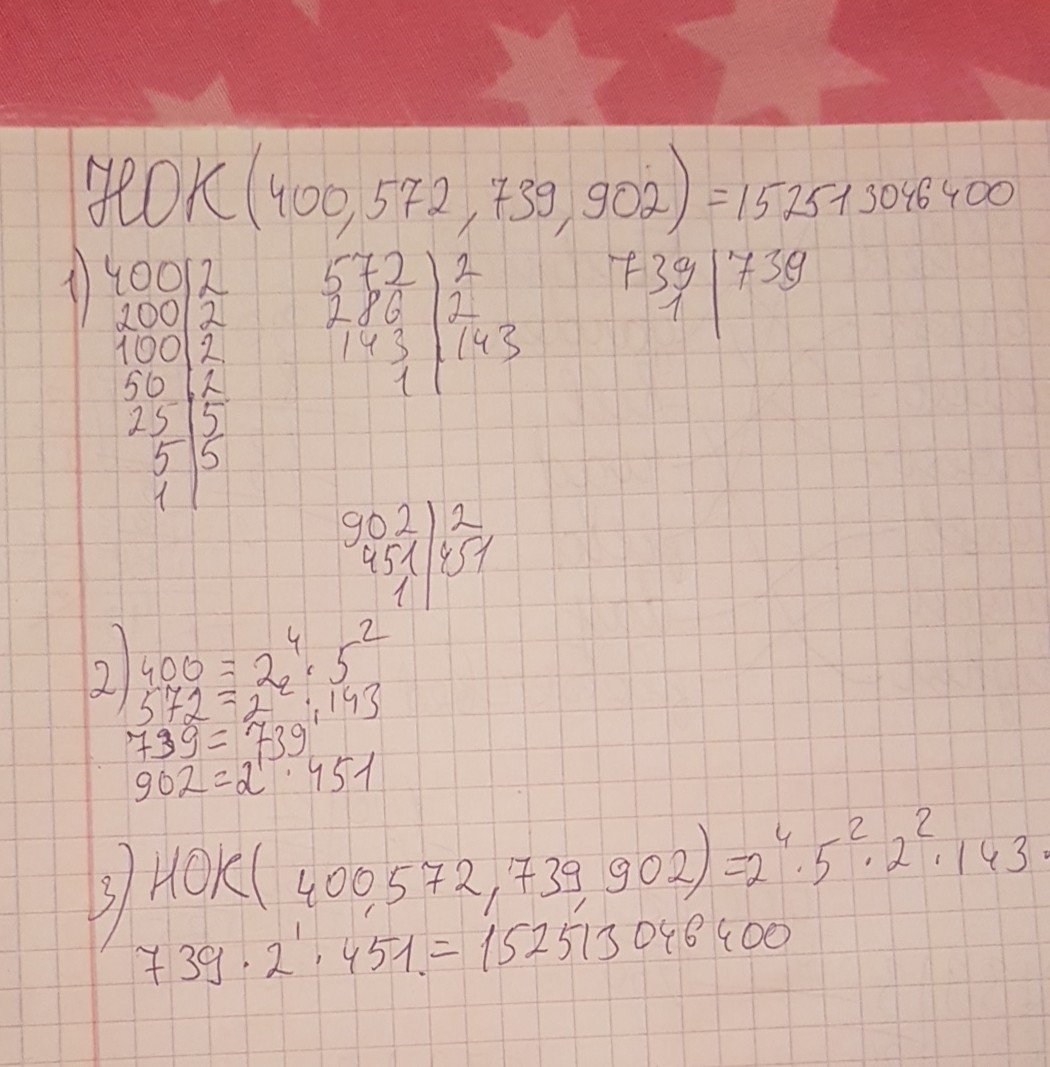 НОК(400,572,739,902)=152513046400
1) 400|2 572|2 739|739
200|2 286|2 1|
100|2 143|143
50|2 1|
25|5
5|5
1|
902|2
451|451
1|
2) 400 = 2⁴ · 5²
572 = 2² · 143
739 = 739¹
902 = 2¹ · 451
3) НОК(400,572,739,902)=2⁴·5²·2²·143·
739·2¹·451.=152513046400